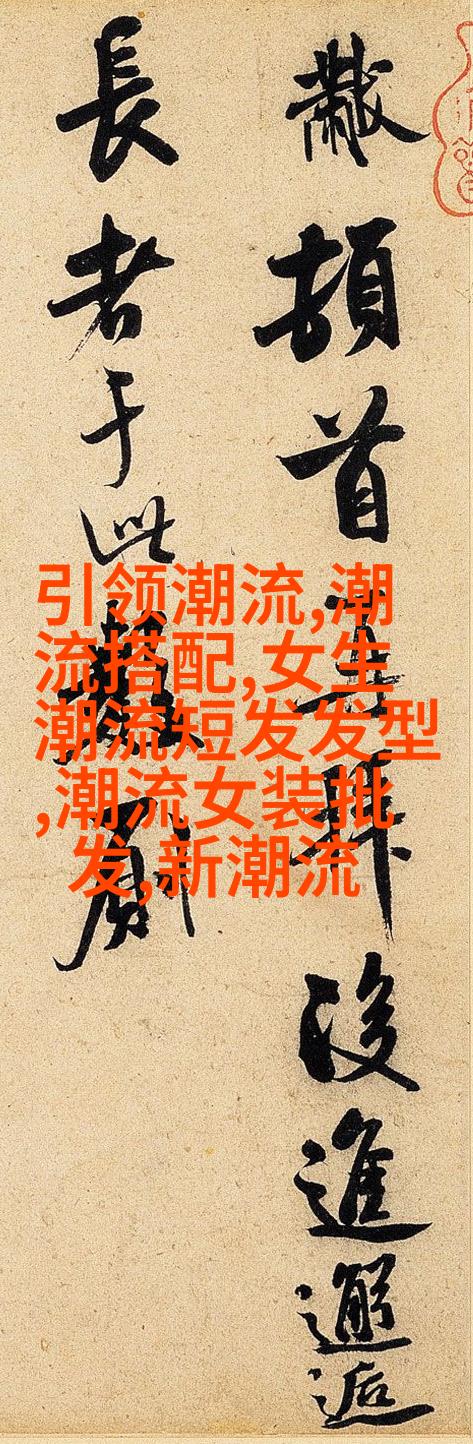 黻頓首再拜後進邂逅
長者于此數厠
引领潮流,潮
流搭配,女生
潮流短发发型
,潮流女装批
发,新潮流